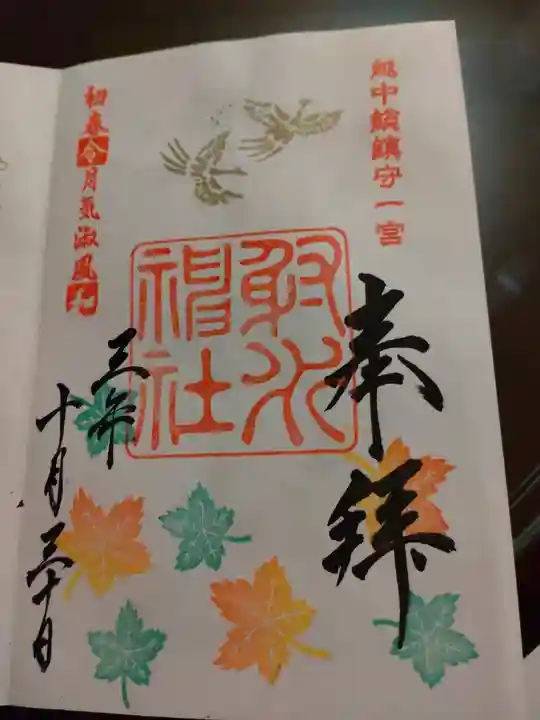 越中総鎮守一宮
奉拝
射水
神社
初春令月気淑風和
三年
十月三十日